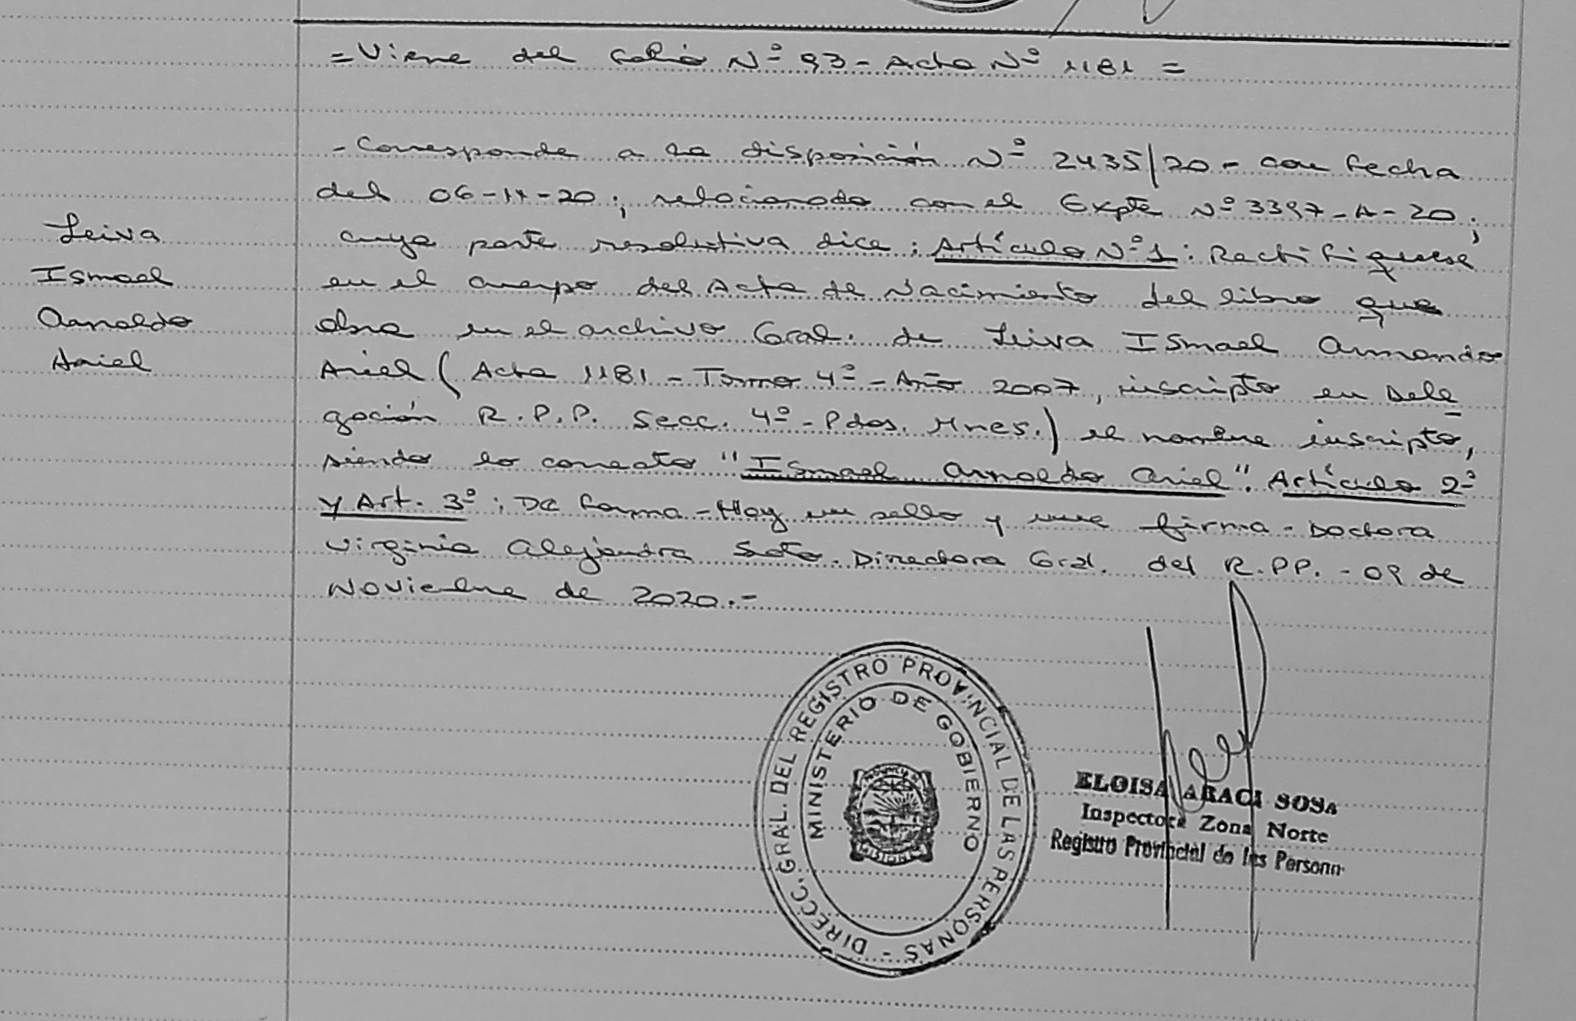 = Viene del folio Nº 93 - Acta Nº 1181 =
- Corresponde a la disposición Nº 2435/20 - con fecha
del 06-11-20; relacionado con el Expte Nº 3397-A-20;
Leiva
Ismael
Arnoldo
Ariel
cuya parte resolutiva dice: Artículo Nº 1: Rectifiquese
en el cuerpo del Acta de Nacimiento del libro que
obra en el archivo Gral. de Leiva Ismael Armando
Ariel (Acta 1181 - Tomo 4º - Año 2007, inscripto en Dele
gación R.P.P. Secc. 4º - Pdas. Mnes.) el nombre inscripto,
siendo lo correcto "Ismael Arnoldo Ariel". Artículo 2º
y Art. 3º: De forma - Hay un sello y una firma - Doctora
Virginia Alejandra Soto. Directora Gral. del R.PP. - 09 de
Noviembre de 2020.-
DIRECC. GRAL. DEL REGISTRO PROVINCIAL DE LAS PERSONAS -
MINISTERIO DE GOBIERNO
MISIONES
ELOISA ARACI SOSA
Inspectora Zona Norte
Registro Provincial de las Personas